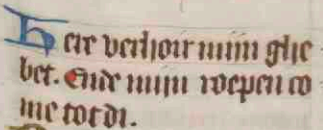 Here verhoir mijn ghe
bet. Ende mijn roepen co
me tot di.